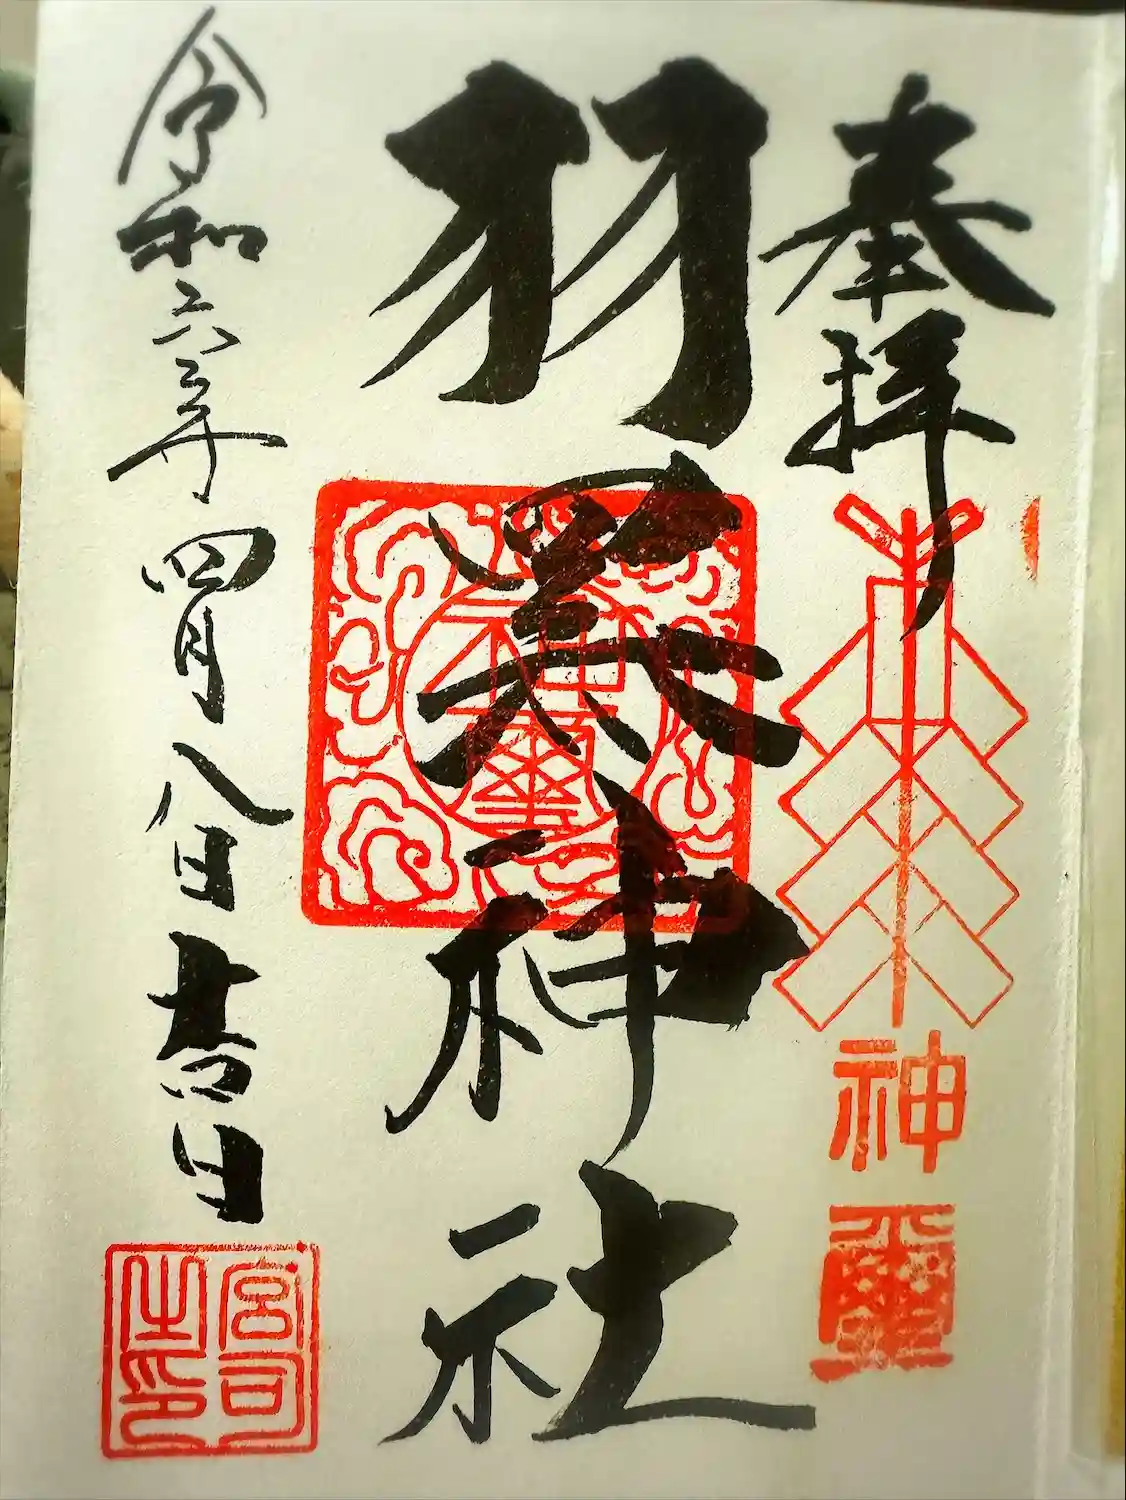 奉拝
神璽
羽黒神社
神璽
令和六年四月八日吉日
宮司
之印